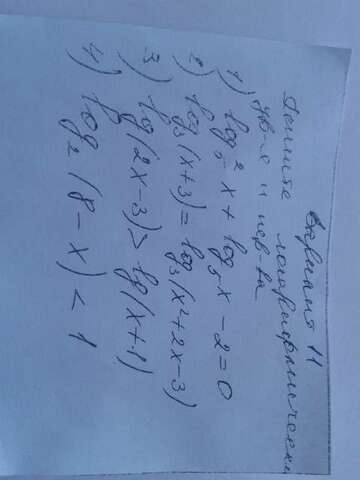 Вариант 11
Решите логарифмически
ур-я и нер-ва
1) log₅² x + log₅ x - 2 = 0
2) log₃(x+3) = log₃(x²+2x-3)
3) lg(2x-3) > lg(x+1)
4) log₂(8-x) < 1